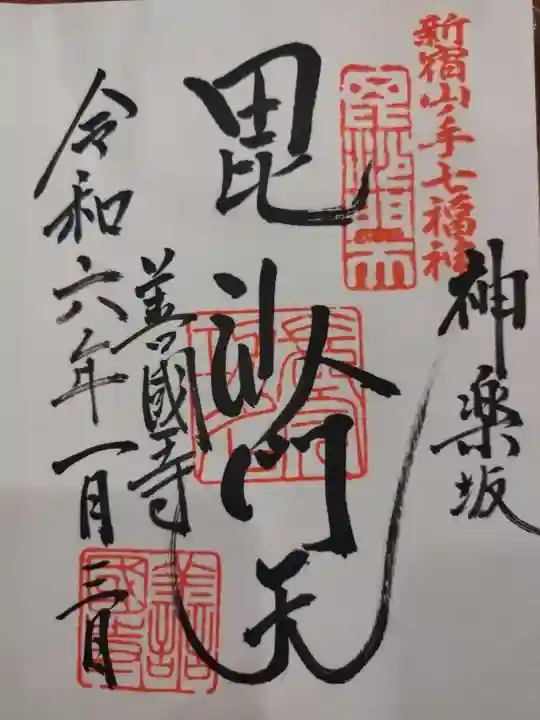 新宿山ノ手七福神
神楽坂
毘沙門天
善國寺
令和六年一月三日